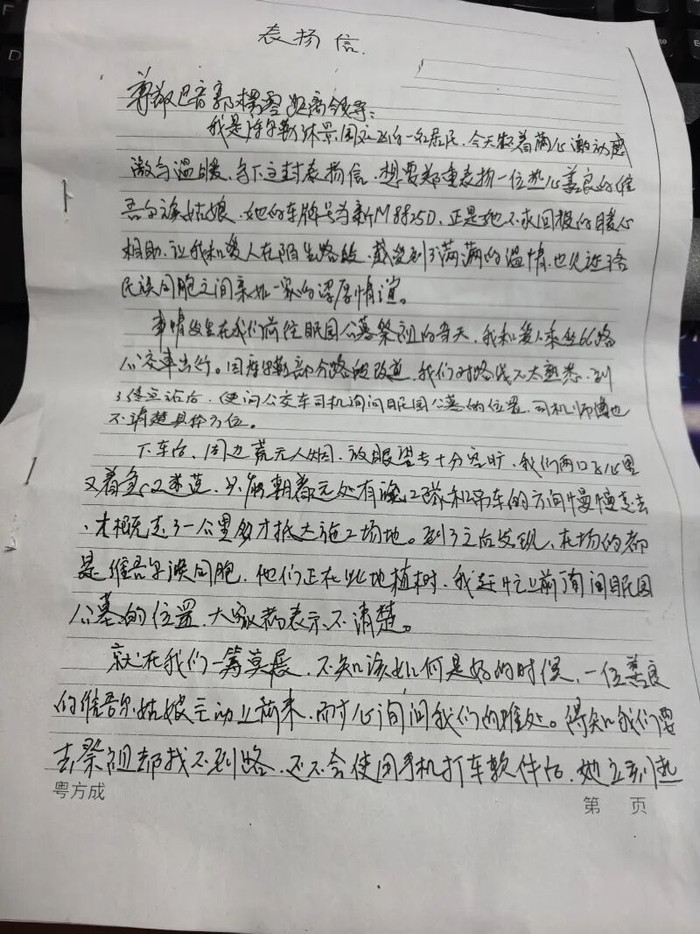 表扬信
尊敬巴音郭楞零距离领导:
我是库尔勒沐景园社区的一名居民,今天怀着满心激动感
激与温暖,写下这封表扬信,想要郑重表扬一位热心善良的维
吾尔族姑娘。她的车牌号为新M8825D,正是她不求回报的暖心
相助,让我和爱人在陌生路段,感受到了满满的温情,也见证了各
民族同胞之间亲如一家的深厚情谊。
事情发生在我们前往眠园公墓祭祖的当天,我和爱人乘坐66路
公交车出行。因库尔勒部分路段改道,我们对路线不太熟悉,到
了终点站后,便向公交车司机询问眠园公墓的位置,司机师傅也
不清楚具体方位。
下车后,周边荒无人烟,放眼望去十分空旷,我们两口子心里
又着急又迷茫,只能朝着远处有施工队和吊车的方向慢慢走去
,大概走了一公里多才抵达施工场地。到了之后发现,在场的都
是维吾尔族同胞,他们正在此地植树,我赶忙上前询问眠园
公墓的位置,大家都表示不清楚。
就在我们一筹莫展,不知该如何是好的时候,一位善良
的维吾尔姑娘主动上前来,耐心询问我们的难处。得知我们要
去祭祖却找不到路,还不会使用手机打车软件后,她立刻热
粤方成
第 页